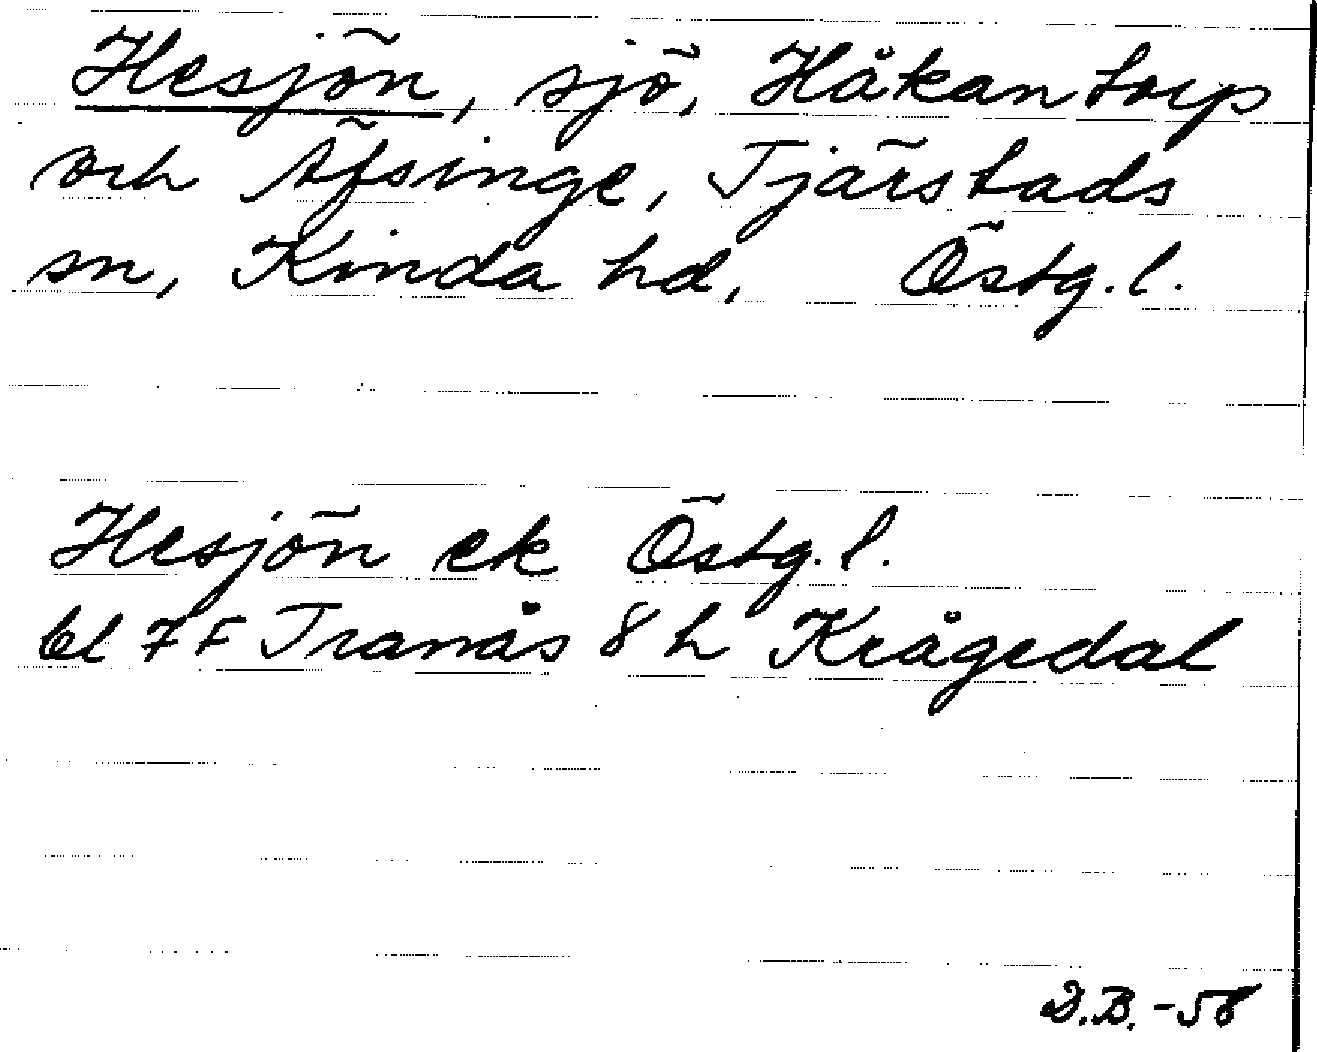 Hesjön, sjö, Håkantorp
och Äfsinge, Tjärstads
sn, Kinda hd, Östg. l.
Hesjön ek Östg. l.
bl 7F Tranås 8 h Krågedal
D.B. -58